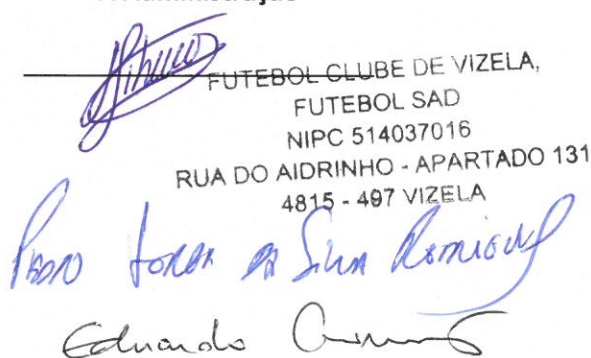 FUTEBOL CLUBE DE VIZELA,
FUTEBOL SAD
NIPC 514037016
RUA DO AIDRINHO - APARTADO 131
4815 - 497 VIZELA
Pedro Jorge da Silva Rodrigues
Eduardo